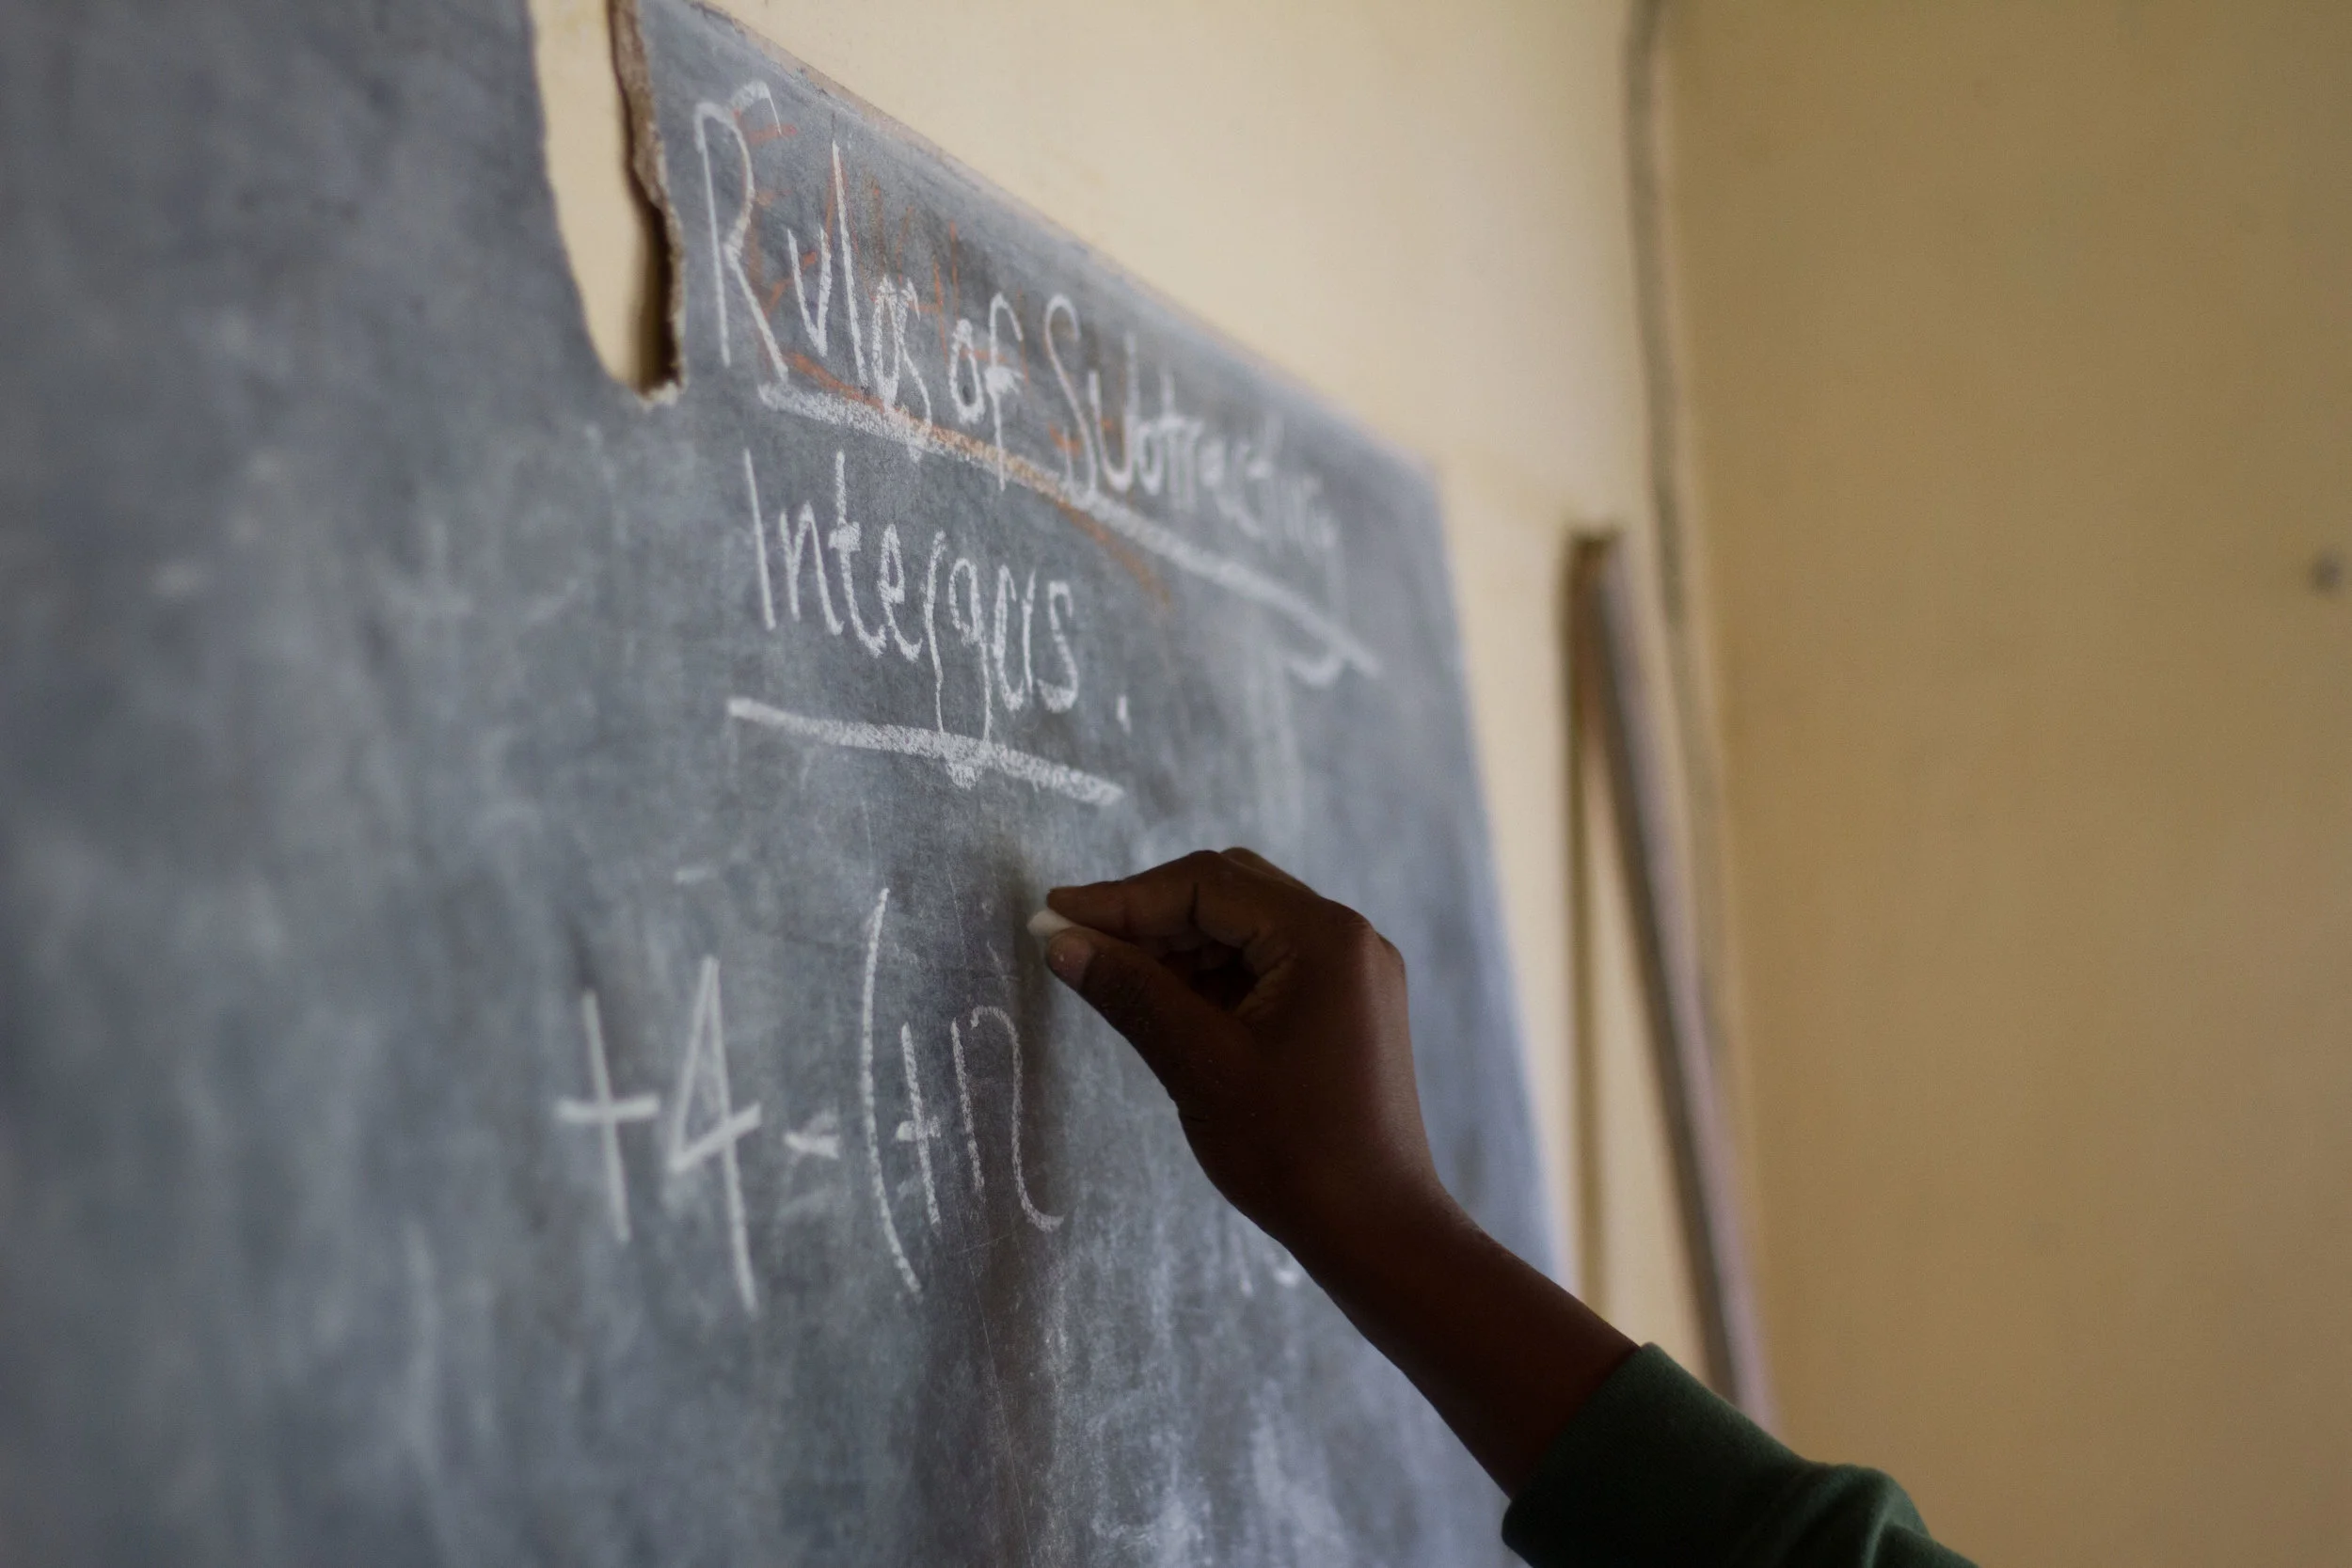 Rules of Subtracting
Intergers.
+4-(+12